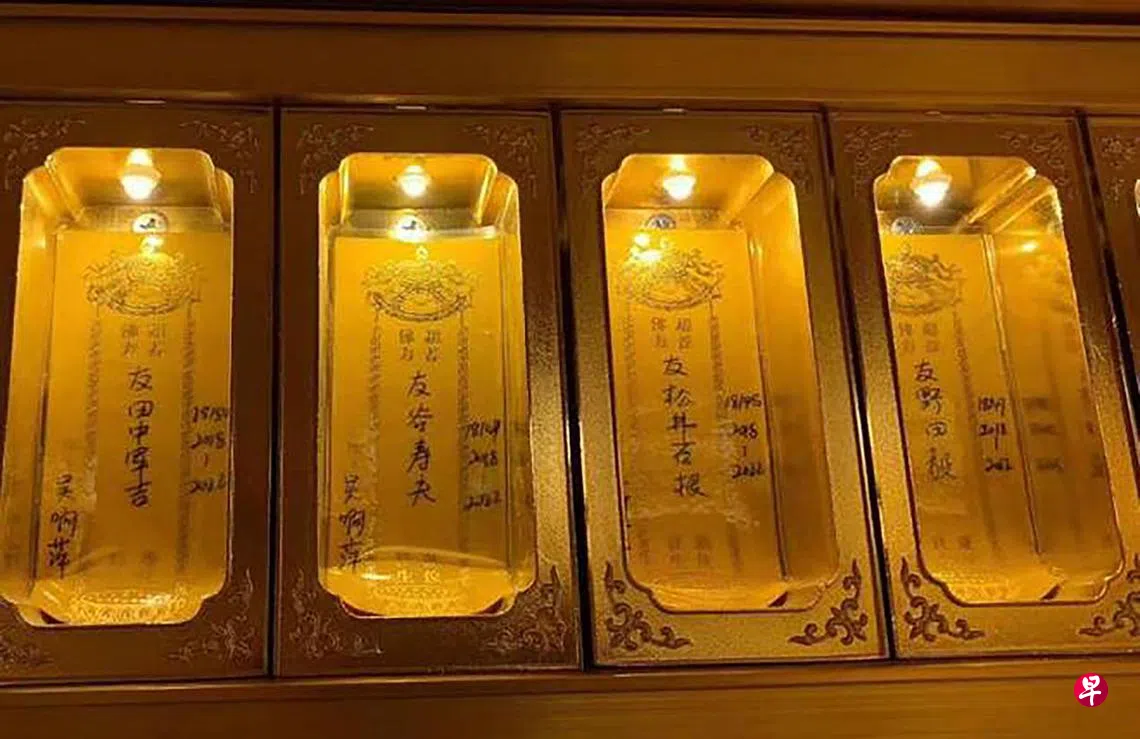 佛力
超荐
友田中军吉
2018
-
2022
吴啊萍
佛力
超荐
友谷寿夫
2018
2022
吴啊萍
佛力
超荐
友松井石根
18/45
2018
-
2022
佛力
超荐
友野田毅
2018
-
早